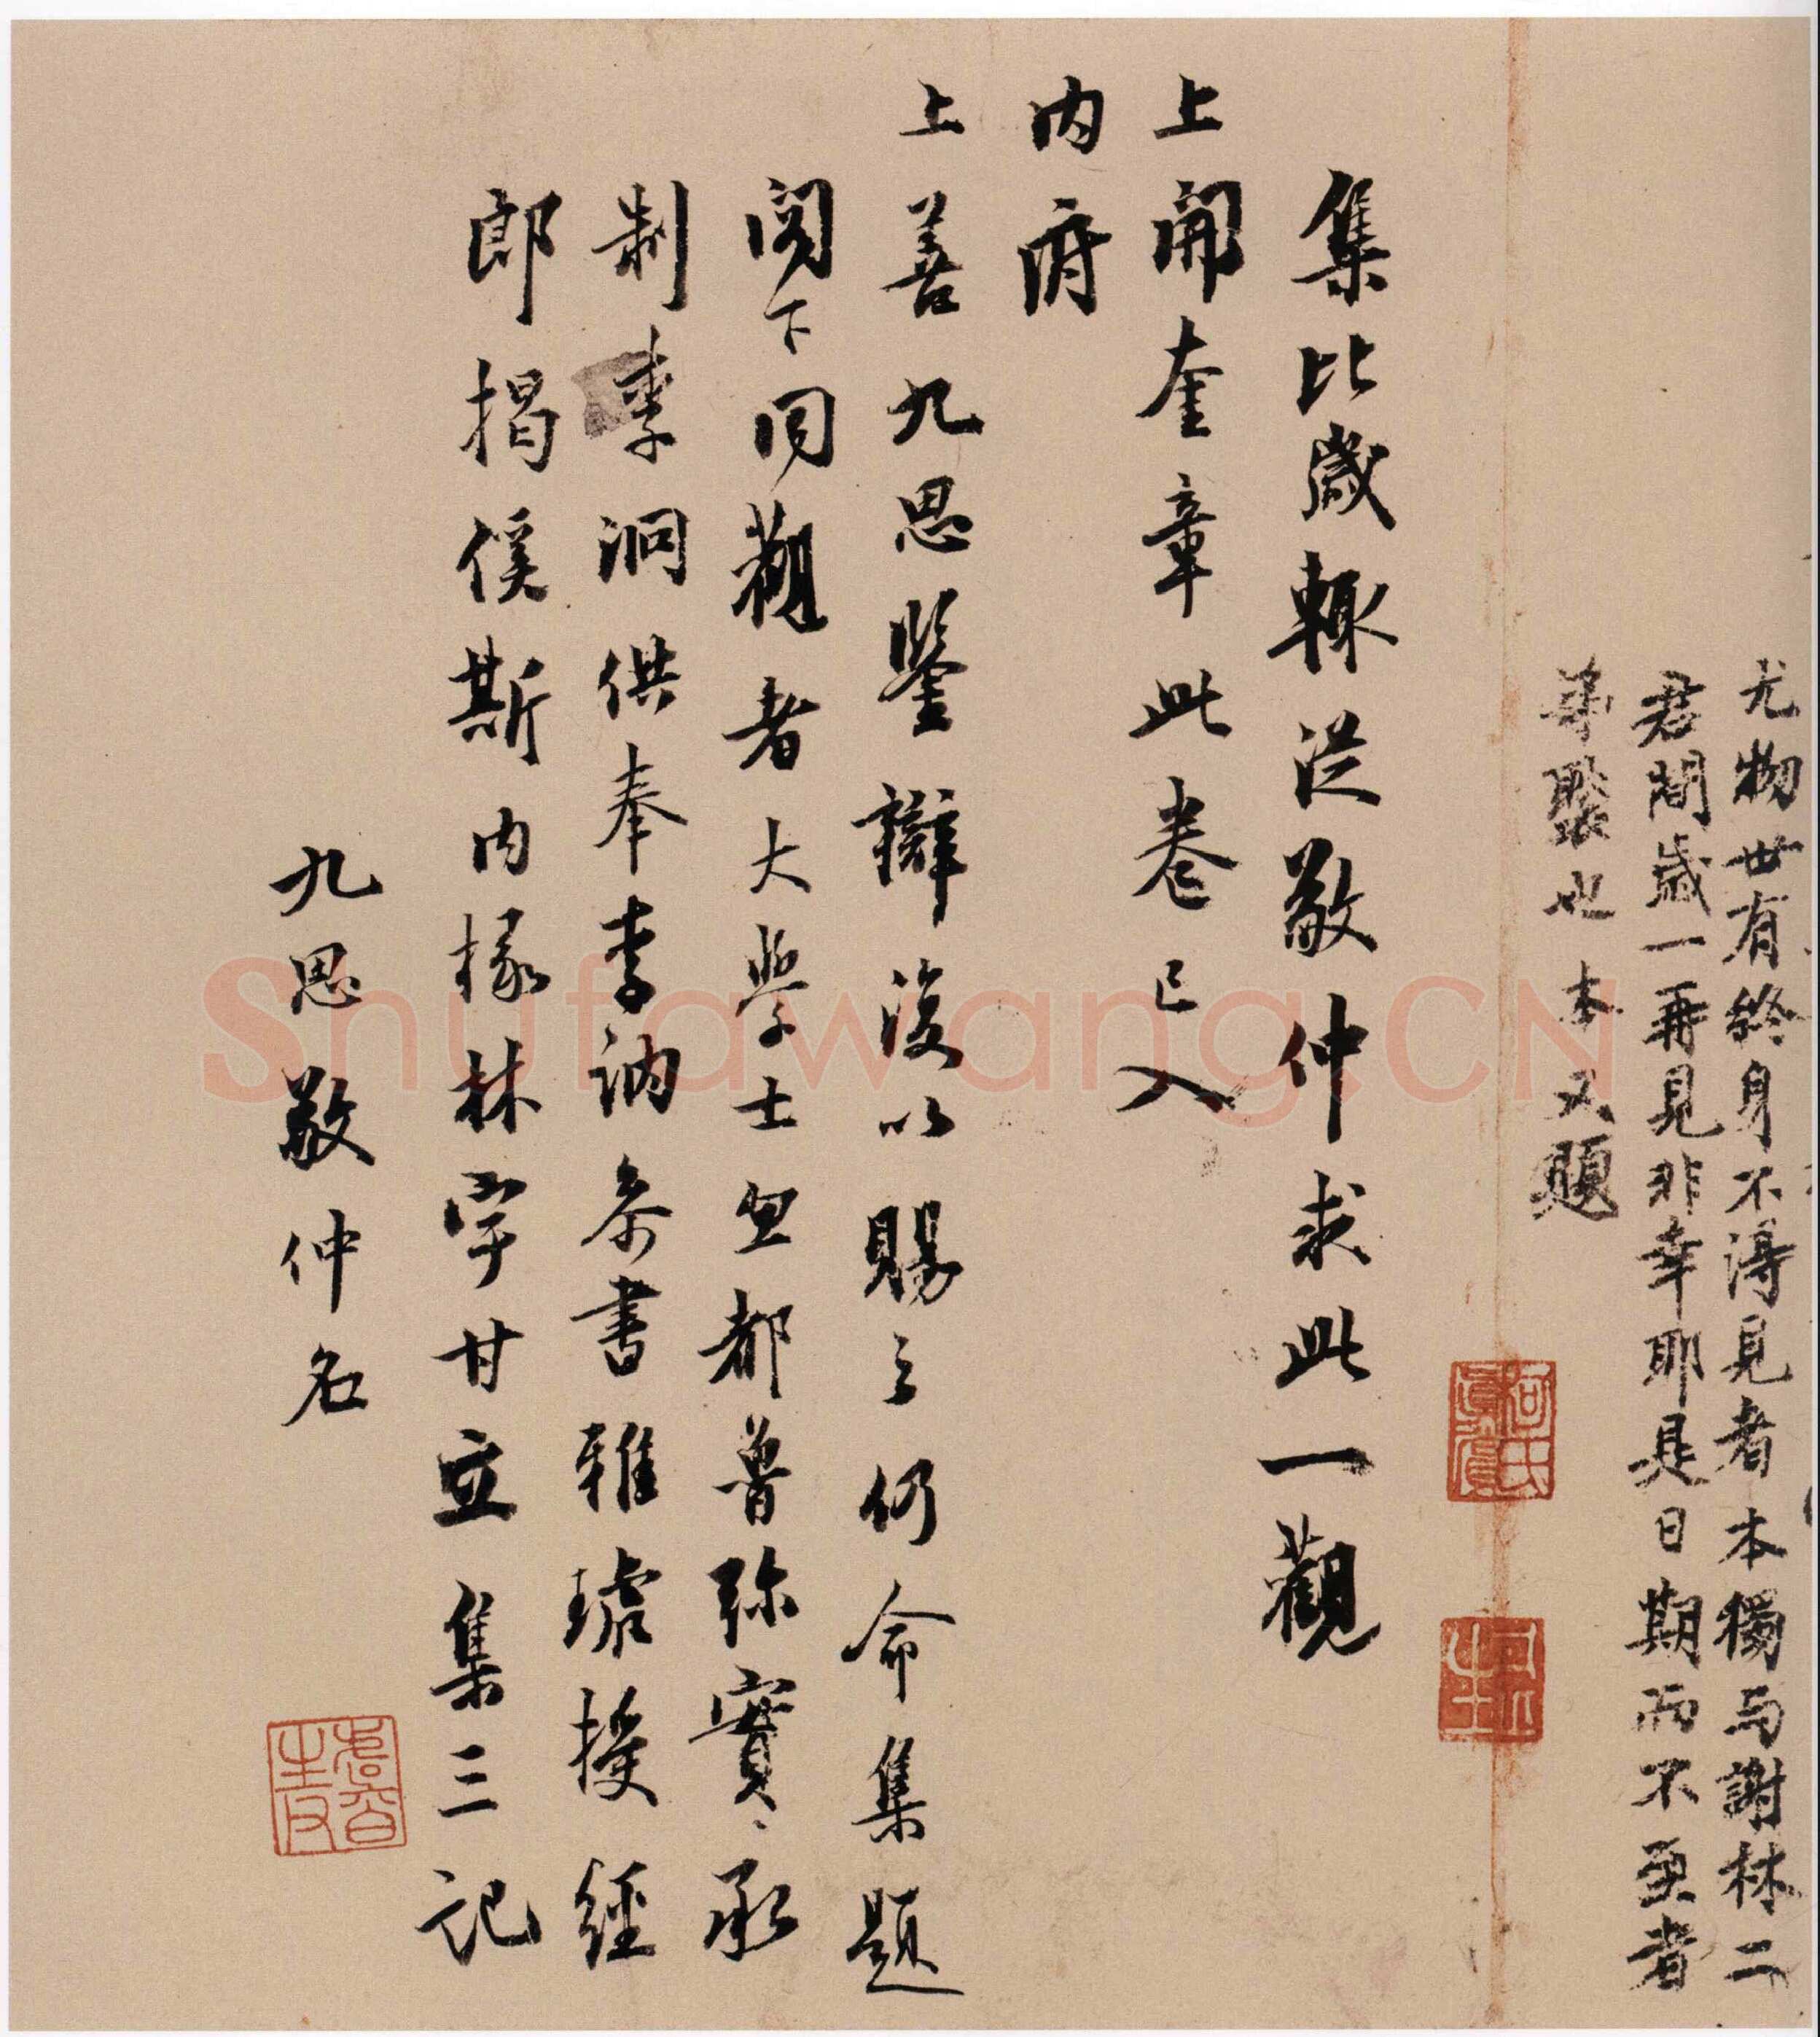 尤物世有終身不得見者本獨与謝林二
君間歲一再見非幸耶是日期而不至者
弟聚也 本又題
集比歲輒從敬仲求此一觀
上開奎章此卷已入
内府
上善九思鑒辯復以賜之仍命集題
閣下同觀者大學士忽都魯弥實承
制李泂供奉李訥參書雅琥授經
郎揭傒斯内掾林宇甘立集三記
九思敬仲名
柯氏真賞
Shufawang.CN